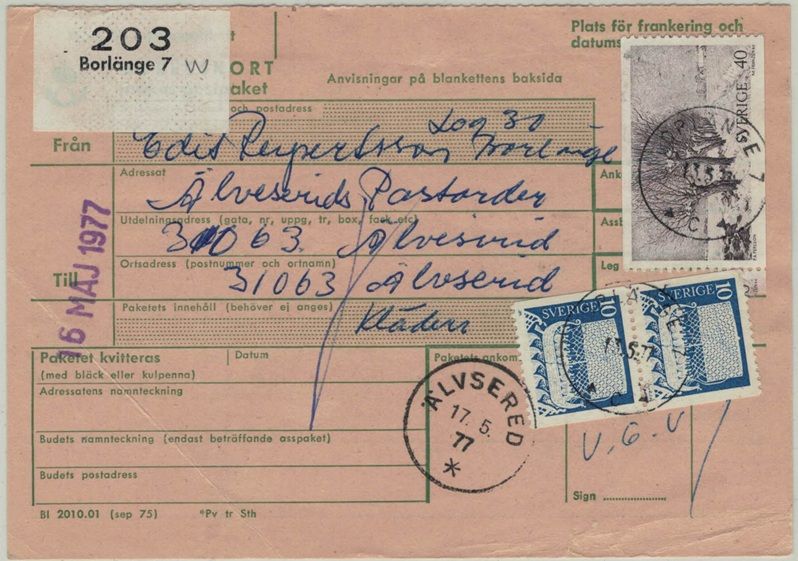 203
Borlänge 7 W
KORT
paket
Anvisningar på blankettens baksida
Plats för frankering och
datums
SVERIGE 40
och postadress
Från
Edit Log 30
Borlänge
Adressat
Älveserids Postorder
Utdelningsadress (gata, nr, uppg, tr, box, fack etc)
31063 Älveserid
Ortsadress (postnummer och ortnamn)
Till
31063 Älvserid
Paketets innehåll (behöver ej anges)
Kläder
16 MAJ 1977
Ank
Assb
Leg
SVERIGE 10
SVERIGE 10
Paketet kvitteras
(med bläck eller kulpenna)
Datum
Paketets ankom
Adressatens namnteckning
Budets namnteckning (endast beträffande asspaket)
Budets postadress
ÄLVSERED
17. 5.
77
*
V. G. V
Sign
Bl 2010.01 (sep 75) *Pv tr Sth